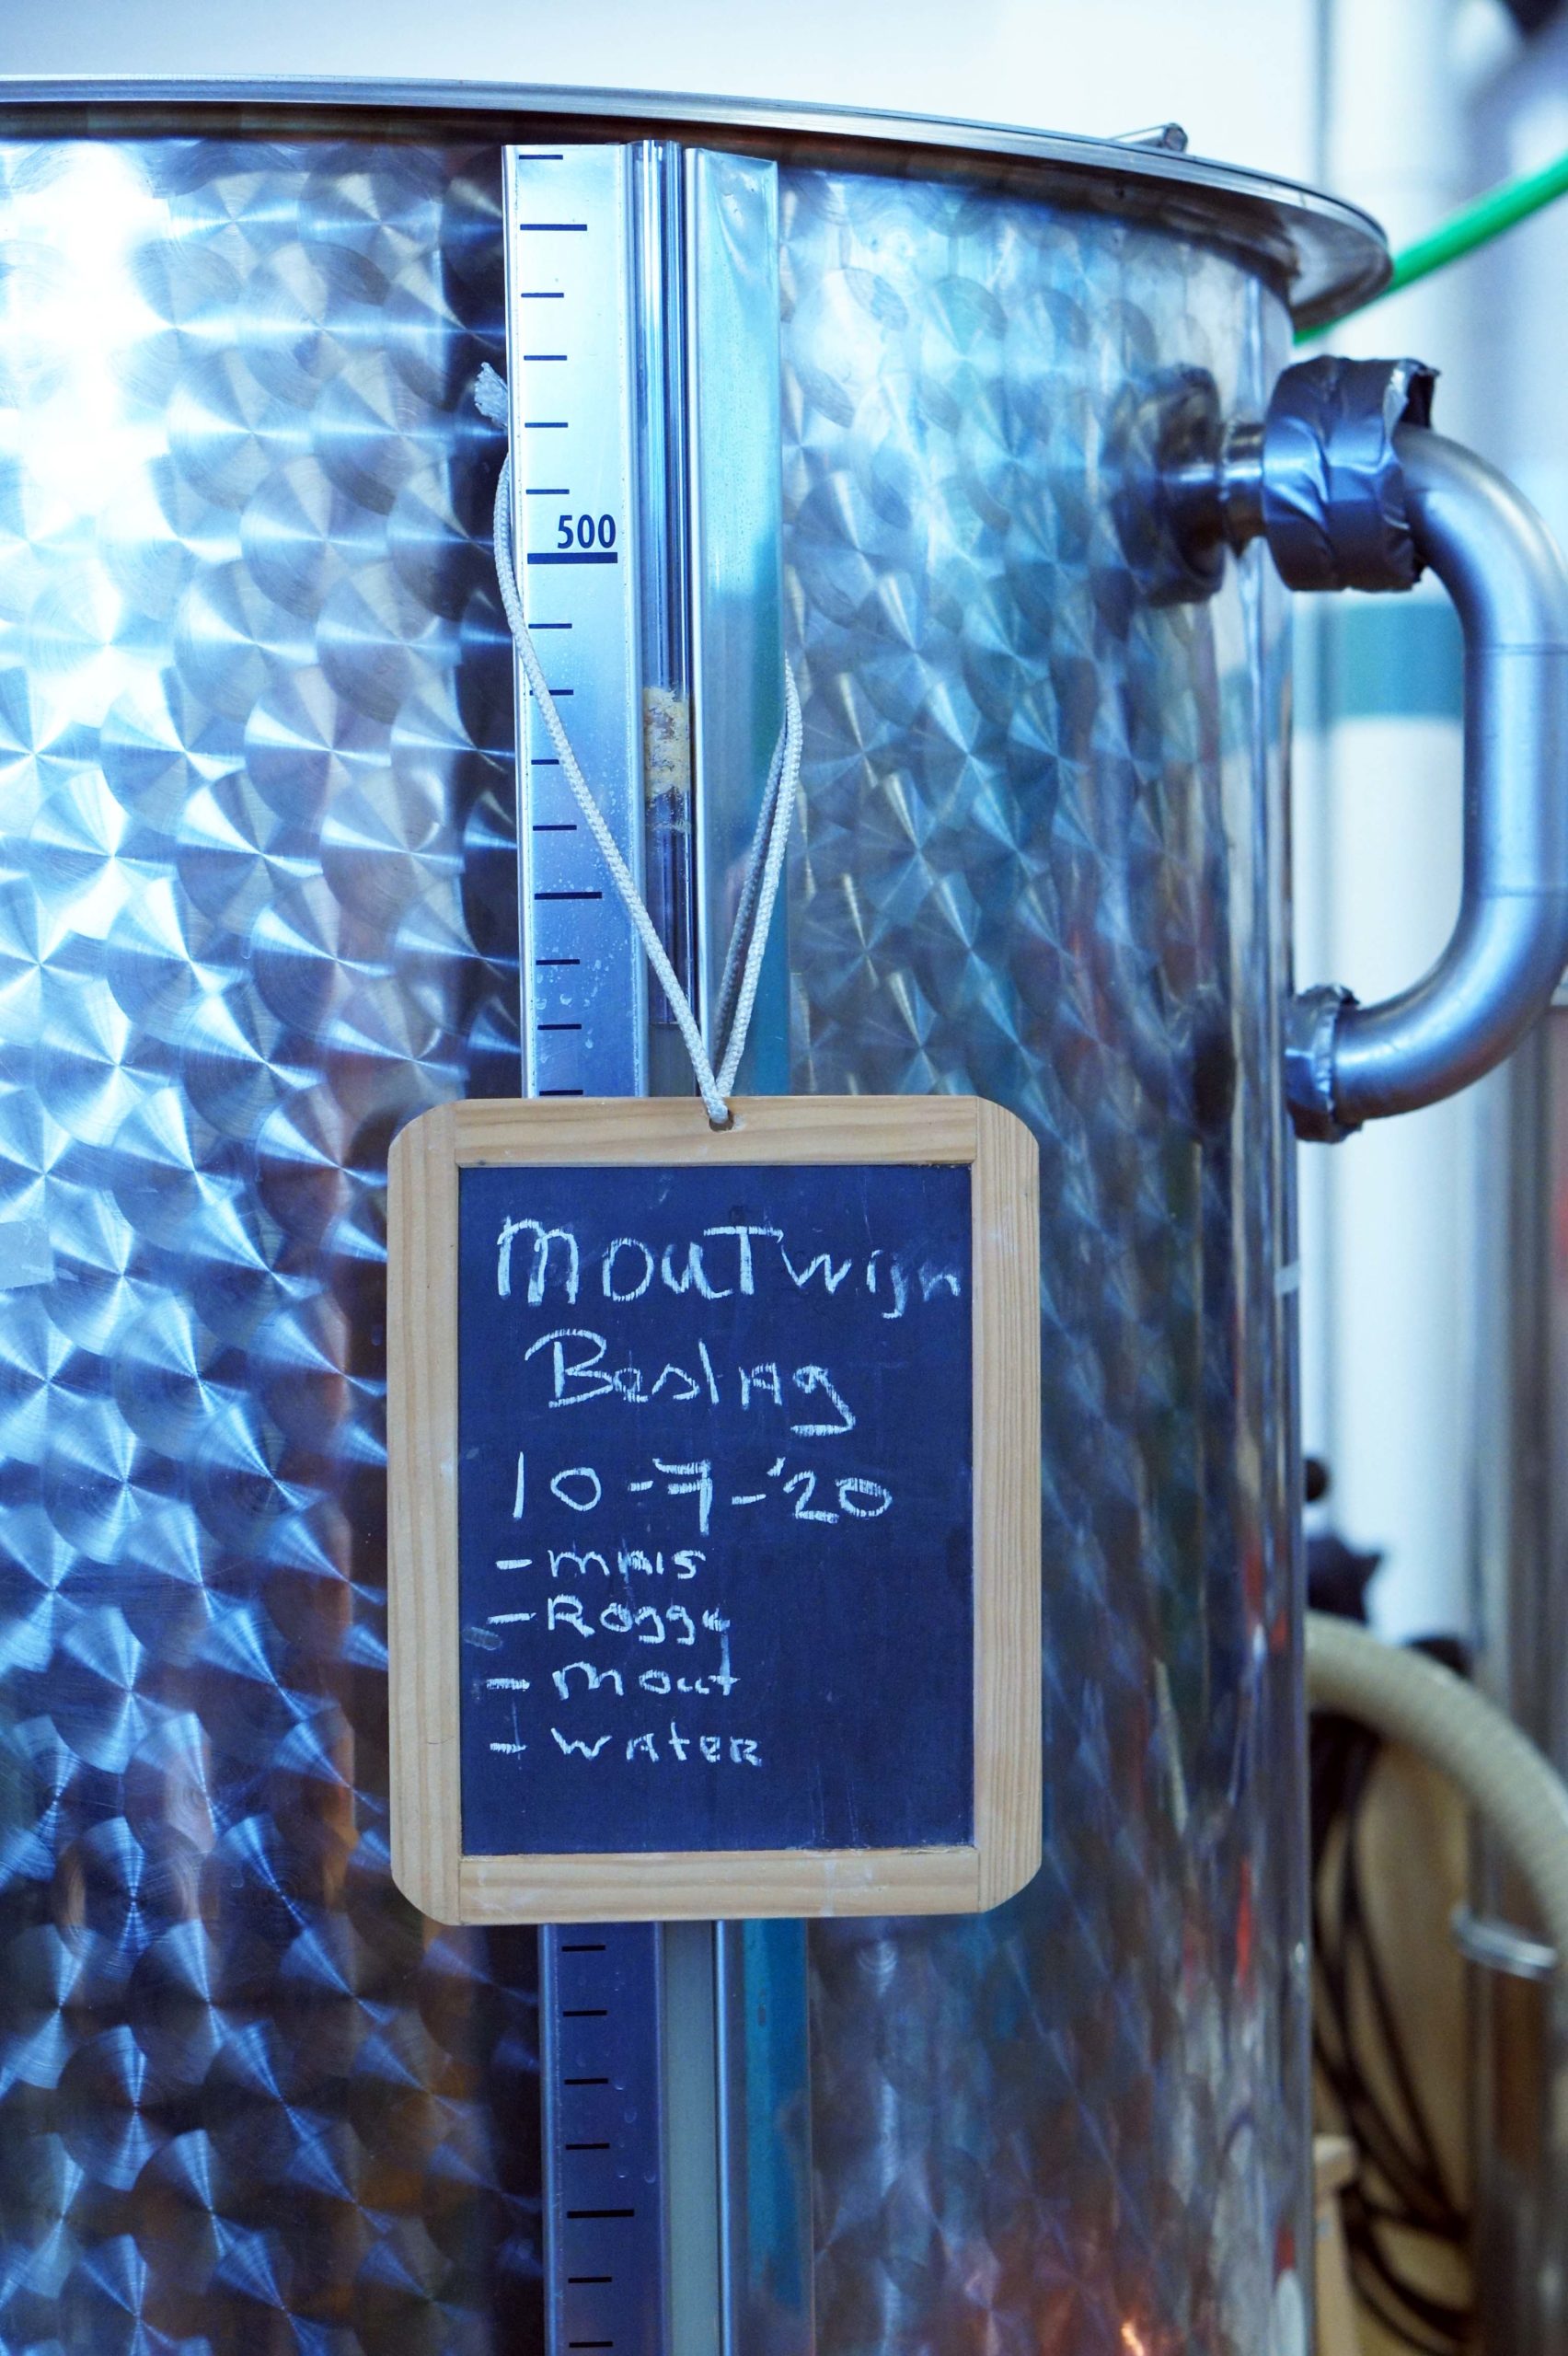 500
Moutwijn
Beslag
10-7-'20
- mais
- Rogge
- mout
- water